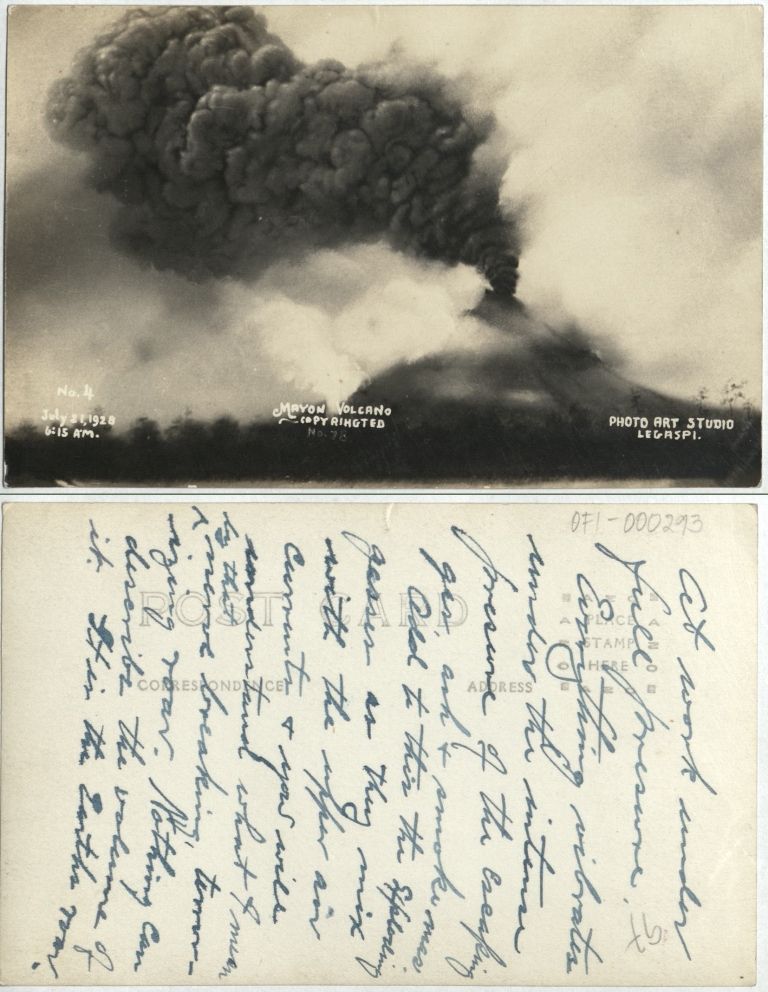 No. 4
July 21, 1928
6:15 A.M.
MAYON VOLCANO
COPYRIHGTED
No. 78
PHOTO ART STUDIO
LEGASPI.
OFI-000293
POST CARD
CORRESPONDENCE
ADDRESS
PLACE
STAMP
HERE
At work under
full pressure.
Everything vibrates
under the intense
pressure of the escaping
gas ash & smoke
Add to this the Exploding
gasses as they mix
with the upper air
currents & you will
understand what I mean
by the
nerve breaking, terror-
izing roar. Nothing can
describe the volume of
it. It is the Earths roar.